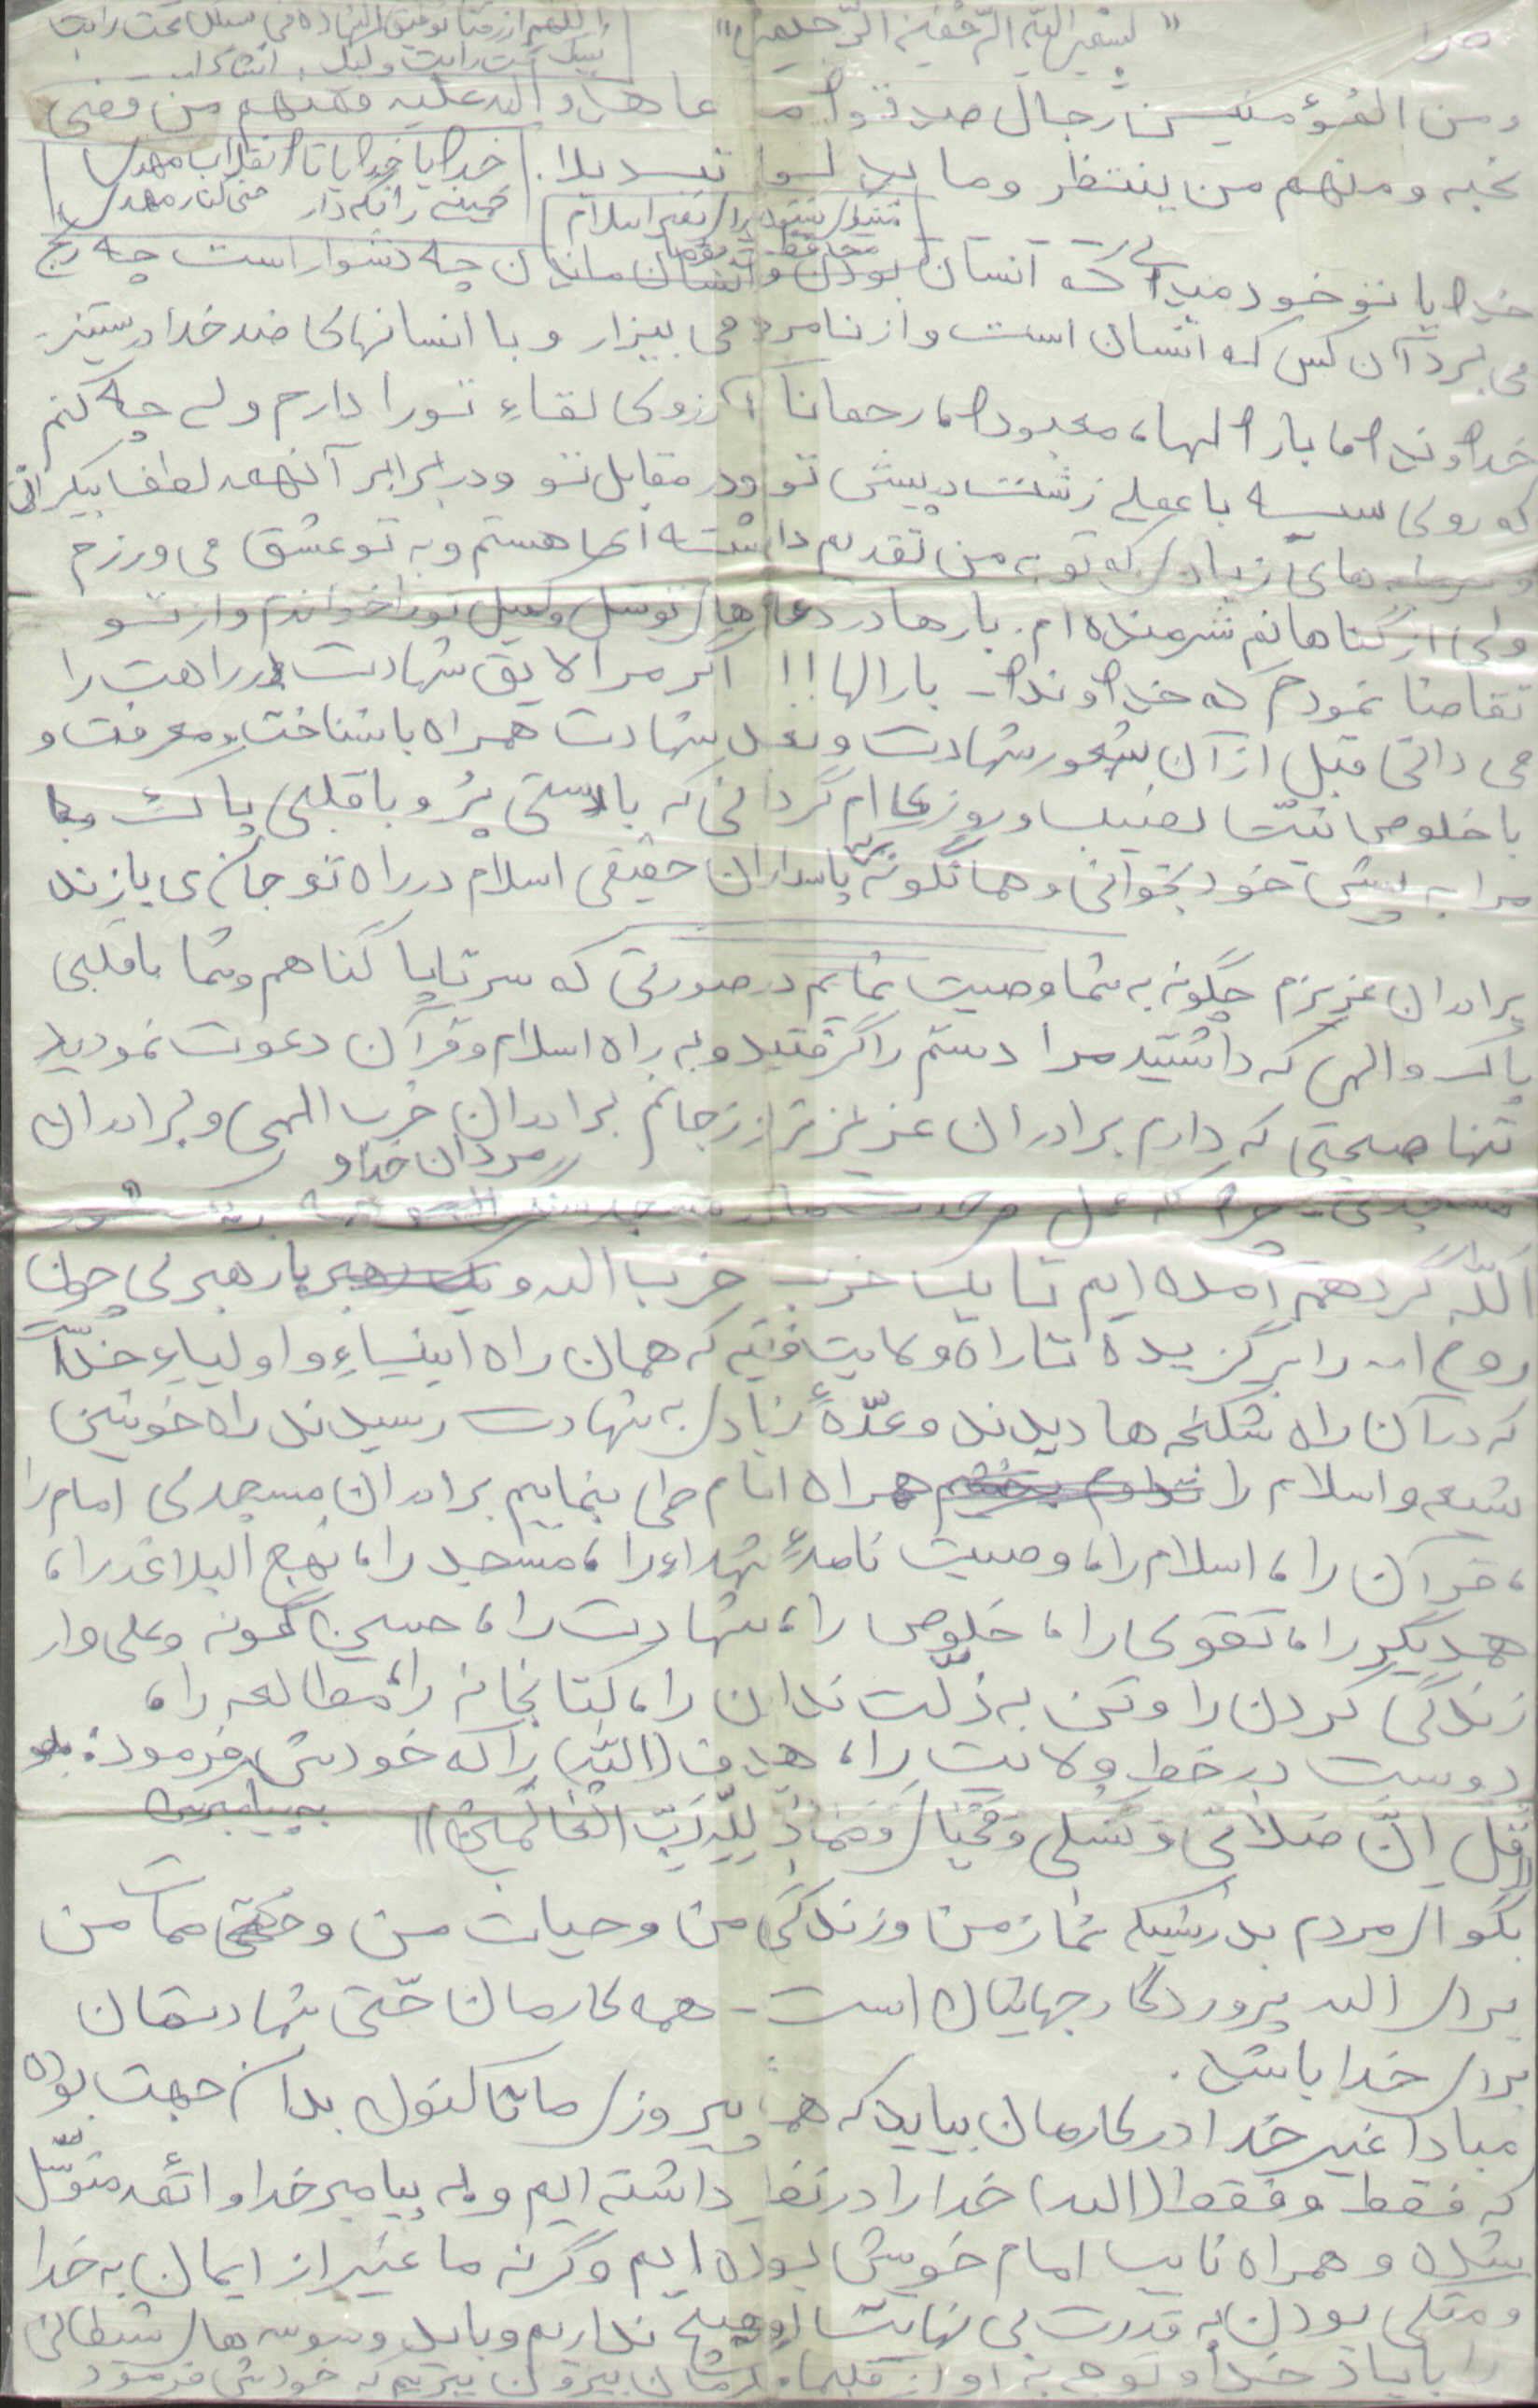 "بسم الله الرحمن الرحیم"
اللهم ارزقنا توفیق الشهادة فی سبیلک تحت رایت
نبیک
من المؤمنین رجال صدقوا ما عاهدوا الله علیه فمنهم من قضی
نحبه و منهم من ینتظر و ما بدلوا تبدیلا.
خدایا خدایا تا انقلاب مهدی
خمینی را نگه دار حتی کنار مهدی
خدایا تو خود میدانی که انسان بودن و انسان ماندن چه دشوار است چه رنج
می برد آن کس که انسان است و از نامردمی بیزار و با انسانهای ضد خدا در ستیز
خداوندا بار الها، معبودا، رحمانا آرزوی لقاء تو را دارم ولی چه کنم
که روی سیه با عملی زشت در پیش تو و در مقابل تو و در برابر آنهمه لطف بیکرانی
های زیادی که تو به من تقدیم داشته ای هستم و به تو عشق می ورزم
ولی از گناهانم شرمنده ام. بارها در دعاهای توسل و کمیل تو را خواندم و از تو
تقاضا نمودم که خداوندا - بار الها!! اگر مرا لایق شهادت در راهت را
می دانی قبل از آن شعور شهادت و بعد شهادت همراه با شناخت و معرفت و
با خلوص نیت نصیب و روزی ام گردانی که با دستی پر و با قلبی پاک
مرا به پیش خود بخوانی و همانگونه که پاسداران حقیقی اسلام در راه تو جان می بازند
برادران عزیزم چگونه به شما وصیت نمایم در صورتی که سر تا پا گناهم و شما با قلبی
پاک و الهی که داشتید مرا دستم را گرفتید و به راه اسلام و قرآن دعوت نمودید
تنها صحبتی که دارم برادران عزیزتر از جانم برادران حزب اللهی و برادران
مردان خدا و
مسجدی - چرا که
الله گرد هم آمده ایم تا یک حزب حزب الله و یک رهبر با رهبری چون
روح الله را برگزیده تا راه ولایت فقیه که همان راه انبیاء و اولیاء خداست
که در آن راه شکنجه ها دیدند و عدّهٔ زیادی به شهادت رسیدند راه خونین
شیعه و اسلام را همراه امام طی بنماییم برادران مسجدی امام را
، قرآن را، اسلام را، وصیت نامهٔ شهداء را، مسجد را، نهج البلاغه را،
همدیگر را، تقوی را، خلوص را، شهادت را، حسین گونه و علی وار
زندگی کردن را و تن به ذلّت ندادن را، کتابخانه را، مطالعه را،
دوست در خط ولایت را، هدف (الله) را که خودش فرموده
به پیامبرش
((قل إنّ صلاتی و نسکی و محیای و مماتی للّه ربّ العالمین))
بگو ای مردم بدرستیکه نماز من و زندگی من و حیات من و حتی ممات من
برای الله پروردگار جهانیان است - همه کارمان حتّی شهادتمان
برای خدا باشد.
مبادا غیر خدا در کارمان بیاید که همه پیروزی ما تا کنون بدان جهت بوده
که فقط و فقط (الله) خدا را در نظر داشته ایم و به پیامبر خدا و ائمه متوسّل
شده و همراه نایب امام خویش بوده ایم و گرنه ما غیر از ایمان به خدا
و متکی بودن به قدرت بی نهایت او هیچ نداریم و باید وسوسه های شیطانی
را با یاد خدا و توجه به او از قلبهایمان بیرون ببریم که خودش فرمود